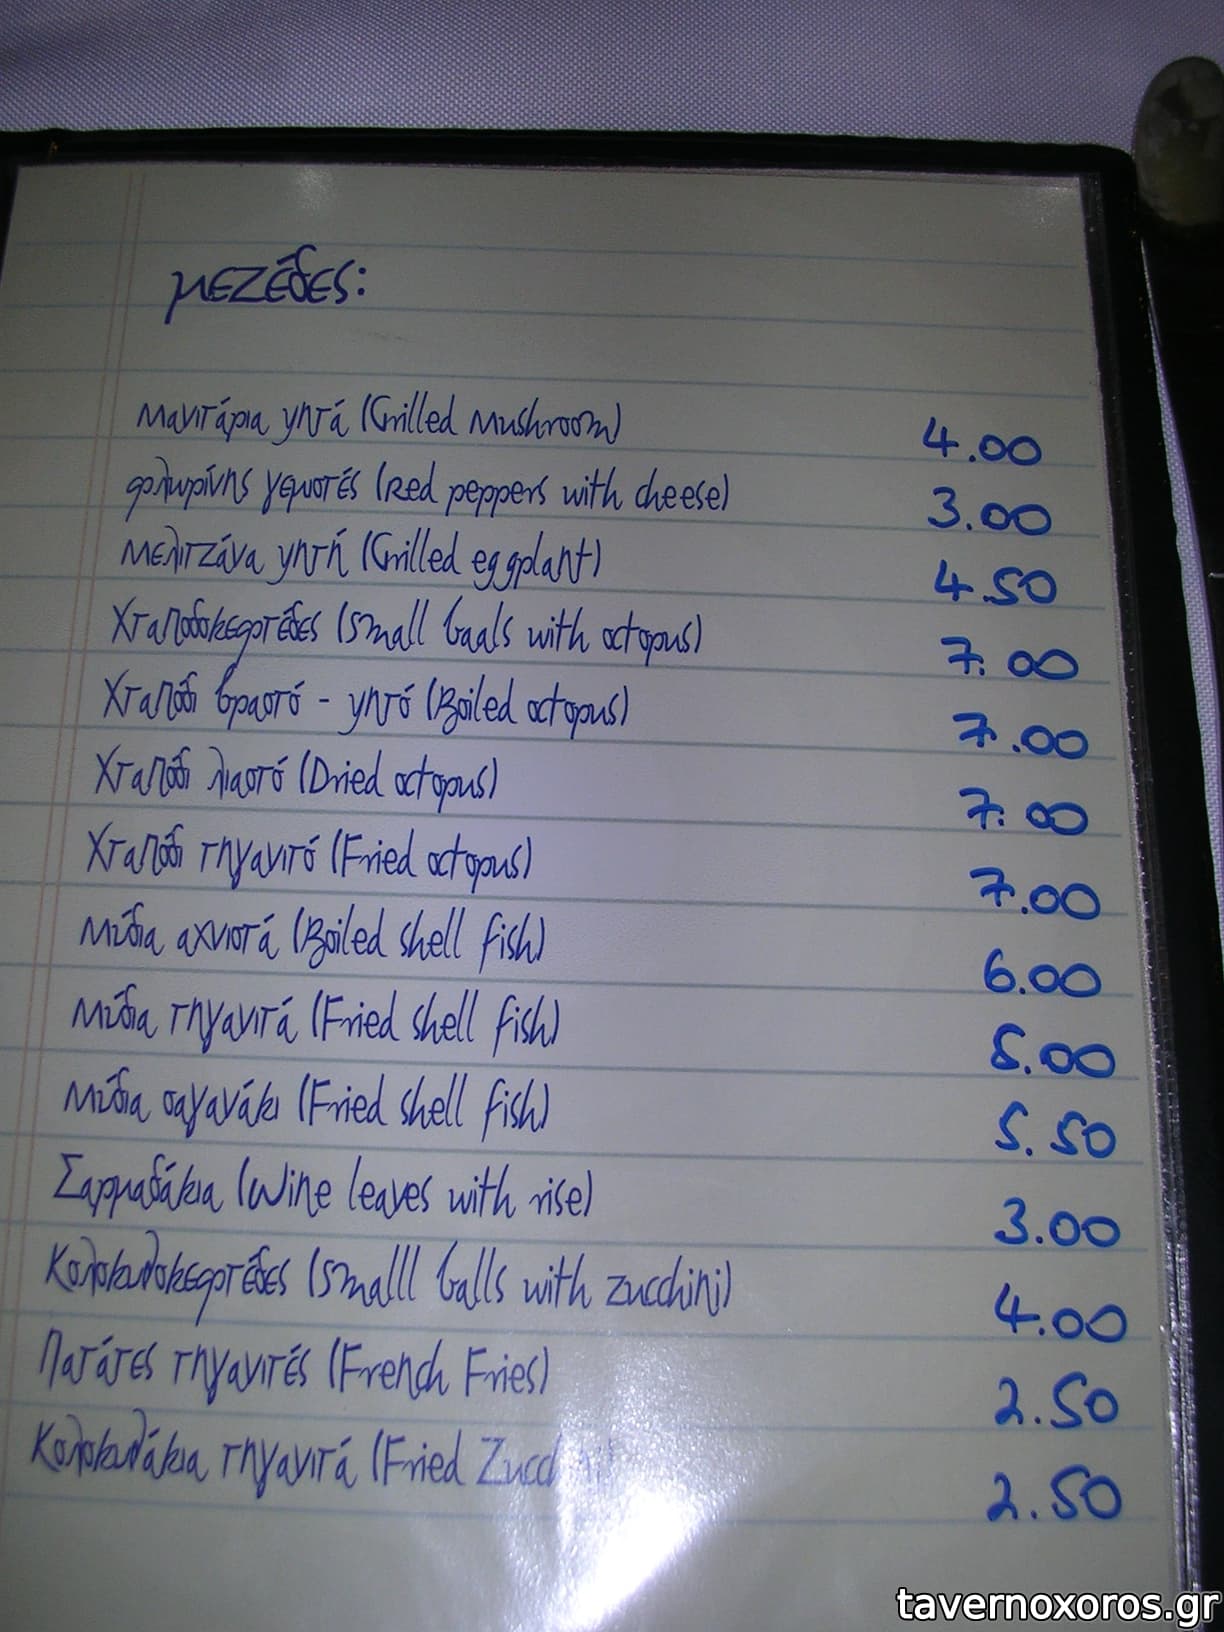 μεζέδες:
Μανιτάρια ψητά (Grilled Mushroom) 4.00
φλωρίνης γεμιστές (Red peppers with cheese) 3.00
Μελιτζάνα ψητή (Grilled eggplant) 4.50
Χταποδοκεφτέδες (Small baals with octopus) 7.00
Χταπόδι βραστό - ψητό (Boiled octopus) 7.00
Χταπόδι λιαστό (Dried octopus) 7.00
Χταπόδι τηγανιτό (Fried octopus) 7.00
Μύδια αχνιστά (Boiled shell fish) 6.00
Μύδια τηγανιτά (Fried shell fish) 5.00
Μύδια σαγανάκι (Fried shell fish) 5.50
Σαρμαδάκια (Wine leaves with rise) 3.00
Κολοκυθοκεφτέδες (Smalll balls with zucchini) 4.00
Πατάτες τηγανιτές (French Fries) 2.50
Κολοκυθάκια τηγανιτά (Fried Zucchini) 2.50
tavernoxoros.gr